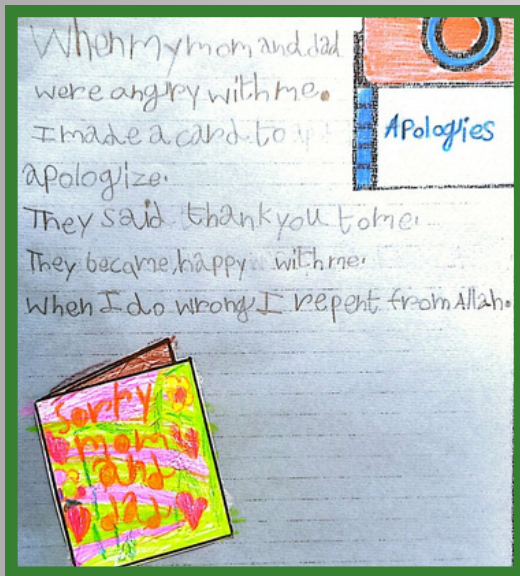 When my mom and dad
were angry with me.
I made a card to
apologize.
They said thank you to me.
They became happy with me.
When I do wrong I repent from Allah.
Apologies
Sorry
mom
and
dad